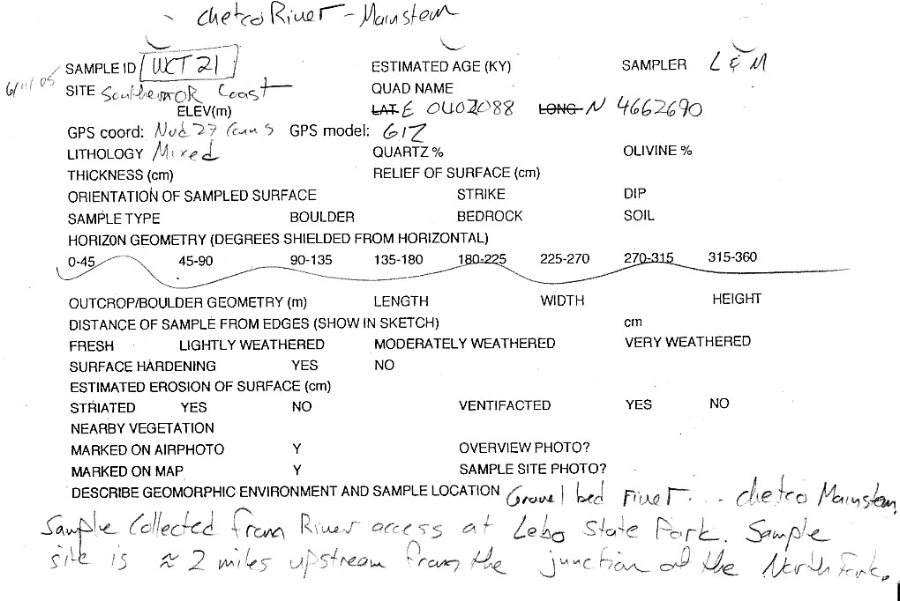 Chetco River - Mainstem
SAMPLE ID WCT 21 ESTIMATED AGE (KY) SAMPLER L & M
SITE Southern OR Coast QUAD NAME
ELEV(m) LAT E 0402088 LONG N 4662690
GPS coord: Nad 27 Conus GPS model: GIZ
LITHOLOGY Mixed QUARTZ % OLIVINE %
THICKNESS (cm) RELIEF OF SURFACE (cm)
ORIENTATION OF SAMPLED SURFACE STRIKE DIP
SAMPLE TYPE BOULDER BEDROCK SOIL
HORIZON GEOMETRY (DEGREES SHIELDED FROM HORIZONTAL)
0-45 45-90 90-135 135-180 180-225 225-270 270-315 315-360
OUTCROP/BOULDER GEOMETRY (m) LENGTH WIDTH HEIGHT
DISTANCE OF SAMPLE FROM EDGES (SHOW IN SKETCH) cm
FRESH LIGHTLY WEATHERED MODERATELY WEATHERED VERY WEATHERED
SURFACE HARDENING YES NO
ESTIMATED EROSION OF SURFACE (cm)
STRIATED YES NO VENTIFACTED YES NO
NEARBY VEGETATION
MARKED ON AIRPHOTO Y OVERVIEW PHOTO?
MARKED ON MAP Y SAMPLE SITE PHOTO?
DESCRIBE GEOMORPHIC ENVIRONMENT AND SAMPLE LOCATION Gravel bed river... Chetco Mainstem.
Sample Collected from River access at Lebo State Park. Sample
site is ≈ 2 miles upstream from the junction of the North Fork.